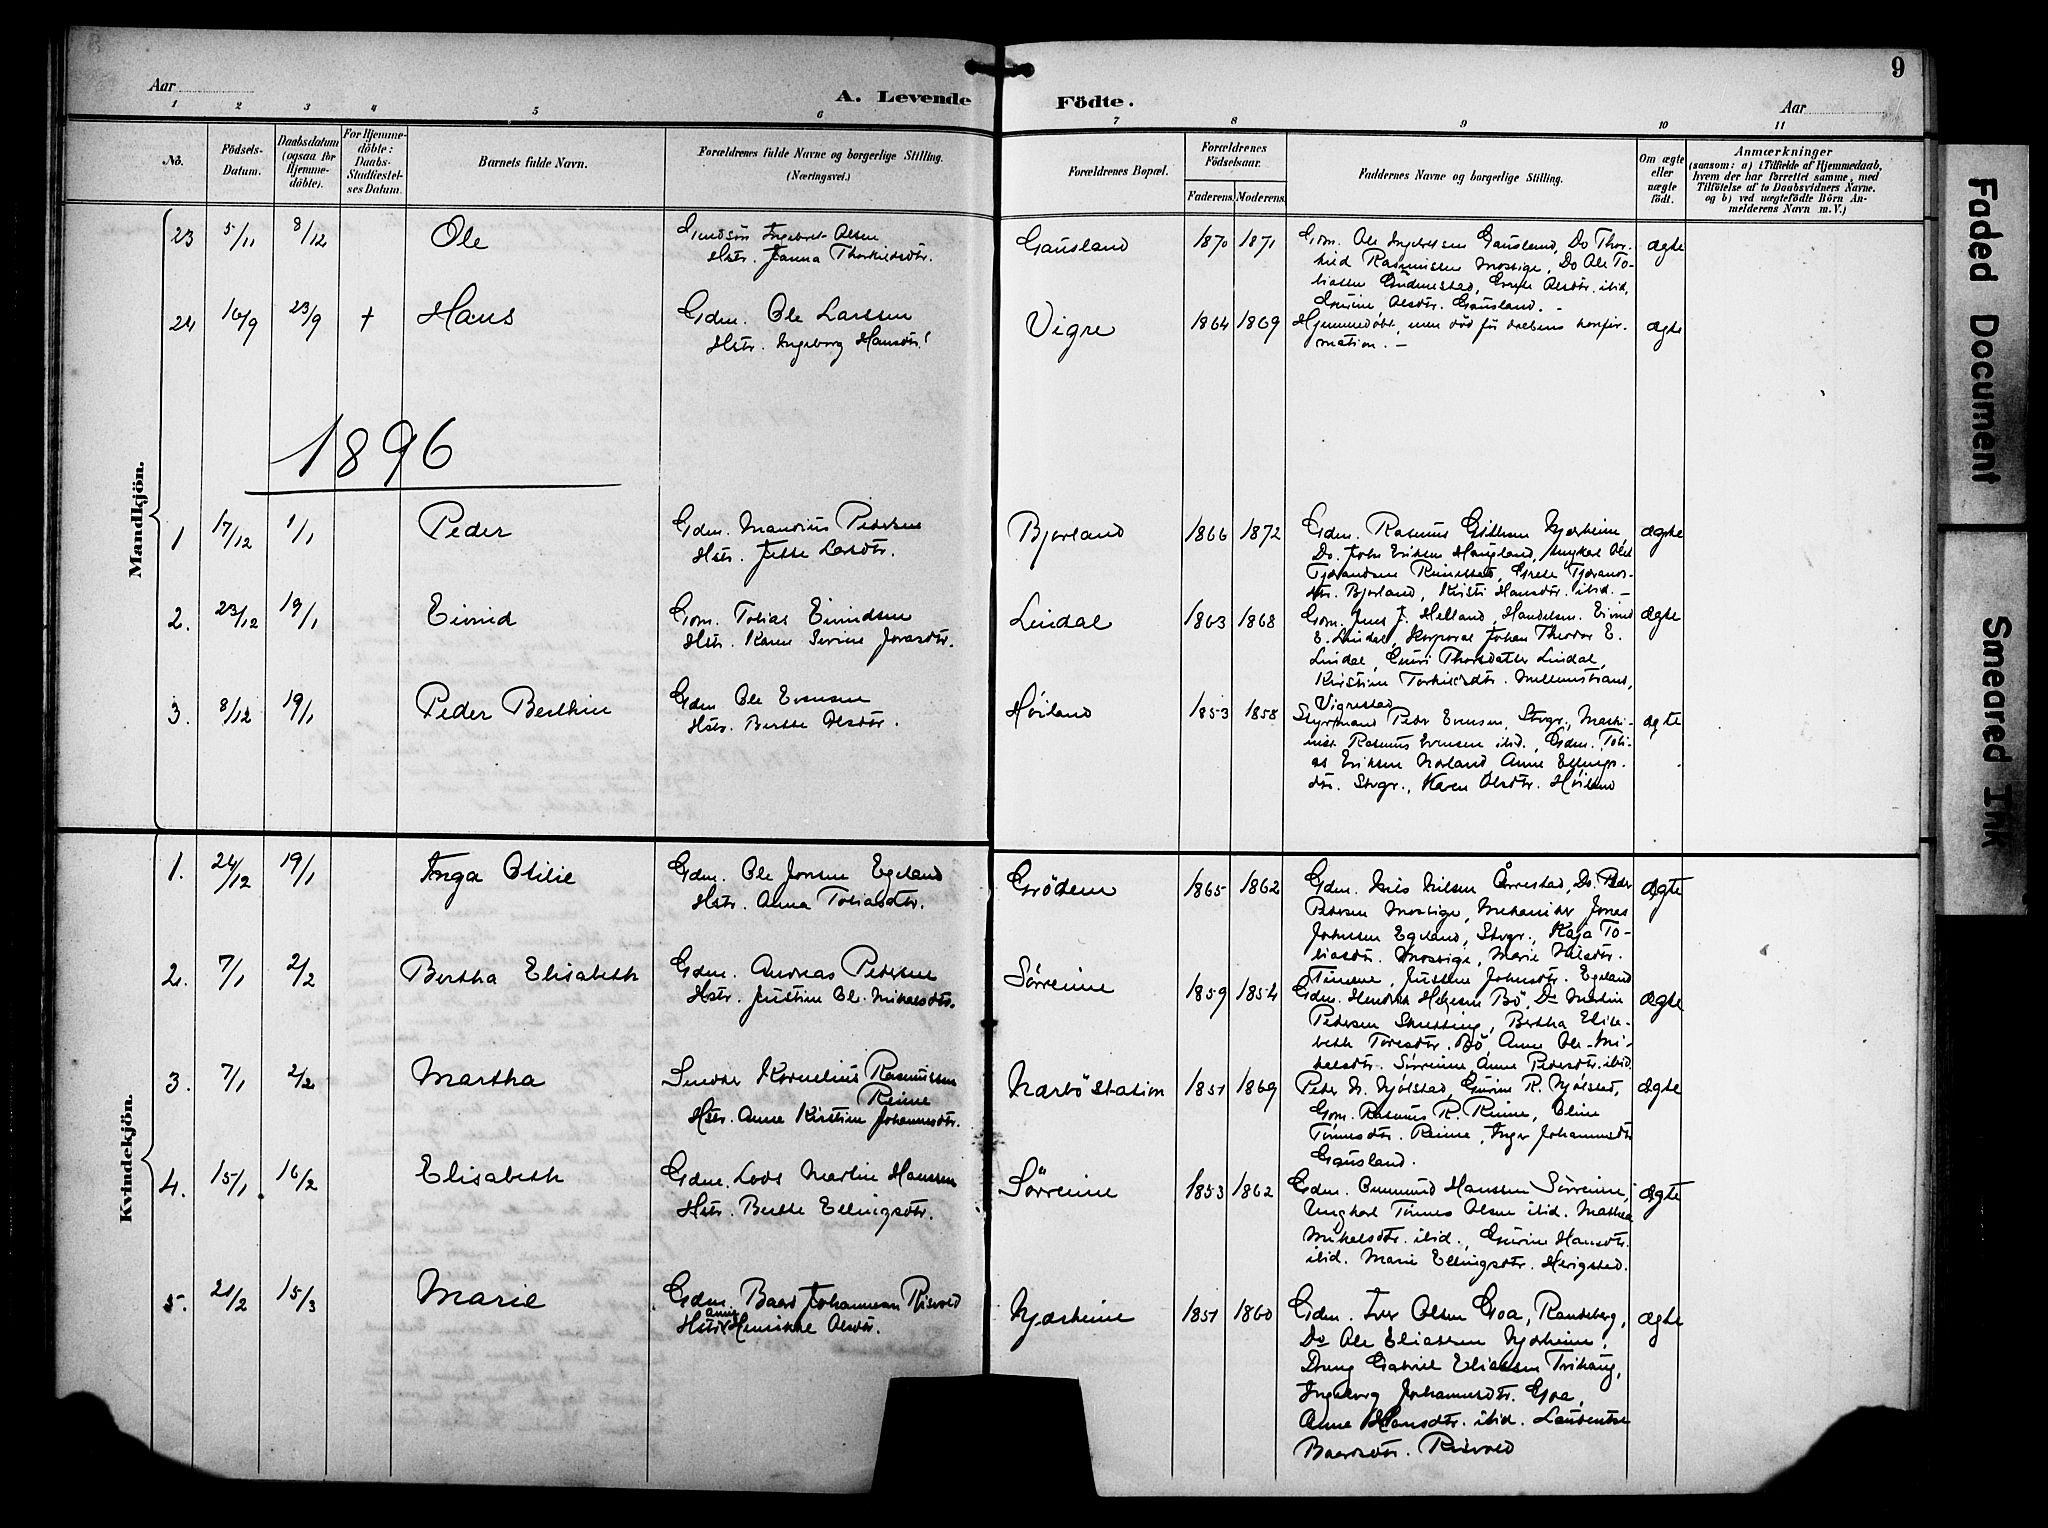 9
Aar
A. Levende Födte.
Aar
1 2 3 4 5 6 7 8 9 10 11
No.
Födsels-
Datum.
Daabsdatum
(ogsaa for
Hjemme-
döbte).
For Hjemme-
döbte:
Daabs-
Stadfæstel-
ses Datum.
Barnets fulde Navn.
Forældrenes fulde Navne og borgerlige Stilling.
(Næringsvei.)
Forældrenes Bopæl.
Forældrenes
Födselsaar.
Faderens. Moderens.
Faddernes Navne og borgerlige Stilling.
Om ægte
eller
uægte
födt.
Anmærkninger
(saasom: a) i Tilfælde af Hjemmedaab,
hvem der har forrettet samme, med
Tilföielse af to Daabsvidners Navne.
og b) ved uægtefödte Börn An-
melderens Navn m. V.)
Mandkjön.
23 5/11 8/12 Ole
Ingebret Olsen
Hstr. Janna Thorkildsdtr.
Gausland 1870 1871
Gdm. Ole Ingebretsen Gausland, Do Thor-
kild Rasmussen Mossige, Do Ole To-
Olsdtr. ibid,
Olsdtr. Gausland. -
ægte
24 16/9 23/9 + Hans
Gdm. Ole Larssen
Hstr. Ingeborg Hansdtr.
Vigre 1864 1869
Hjemmedøbt, men død før daabens konfir-
mation. -
ægte
1896
1 17/12 1/1 Peder
Gdm. Mandius Pedersen
Hstr. Larsdtr.
Bjorland 1866 1872
Gdm. Rasmus Njærheim,
Do. John Eriksen Haugland, Ungkar
Tjerandsen
Bjorland, Kristi Hansdtr. ibid. -
ægte
2. 23/12 19/1 Eivind
Gdm. Tobias Eivindsen
Hstr. Karen Serine Jonasdtr.
Lindal 1863 1868
Gdm. Jens J. Helland, Handelsm. Eivind
E. Lindal, Korporal Johan Theodor E.
Lindal, Guri Thorsdatter Lindal,
Kirstine Torkildsdtr.
Vigrestad
ægte
3. 8/12 19/1 Peder Berthin
Gdm Ole Evensen
Hstr. Berthe Olsdtr.
Høiland 1853 1858
Styrmand Peder Evensen, Stvgr., Maski-
nist Rasmus Evensen ibid., Gdm. Tobi-
as Eriksen Norland Anne Ellings-
dtr. Stvgr., Karen Olsdtr. Høiland
ægte
Kvindekjön.
1. 24/12 19/1 Inga Otilie
Gdm. Ole Jonsen Egeland
Hstr. Anna Tobiasdtr.
Grödem 1865 1862
Gdm. Nils Nilsen Årrestad, Do. Peder
Pedersen Mossige, Mekaniker Jonas
Johnsen Egeland, Stvgr., Kaja To-
biasdtr. Mossige, Marie Nilsdtr.
Johnsdtr. Egeland
ægte
2. 7/1 2/2 Bertha Elisabeth
Gdm. Andreas Pedersen
Hstr. Justine Ol. Mikalsdtr.
Sørreime 1859 1854
Gdm. Hendrik Bö, Do Martin
Pedersen Skretting, Bertha Elisa-
beth Toresdtr. Bö, Anne Ole-Mi-
kalsdtr. Sørreime, Anne Pedersdtr. ibid.
ægte
3. 7/1 2/2 Martha
Snedker Kornelius Rasmussen
Reime
Hstr. Anne Kirstine Johannesdtr.
Nærbö station 1851 1869
Peder N. Njölstad, Gurine R. Njölstad,
Gdm. Rasmus R. Reime, Oline
Tönnesdtr. Reime, Inger Johannesdtr
Gausland.
ægte
4. 15/1 16/2 Elisabeth
Gdm. Lods Martin Hanssen
Hstr. Berthe Ellingsdtr.
Sørreime 1853 1862
Gdm. Ommund Hanssen Sørreime,
Ungkarl Tönnes Olsen ibid. Mathea
Mikalsdtr. ibid., Gurine Hansdtr.
ibid. Marie Ellingsdtr. Herigstad.
ægte
5. 21/2 15/3 Marie
Gdm. Baard Johannesen Risvold
Hstr. Anne Henrikke Olsdtr.
Njærheim 1851 1860
Gdm. Iver Olsen Goa, Randeberg,
Do Ole Eliassen Njærheim,
Dreng Gabriel Eliassen Trihaug,
Ingeborg Johannesdtr. Goa,
Anne Hansdtr. ibid. Laurentse
Baardsdtr. Risvold
ægte
Faded Document
Smeared Ink